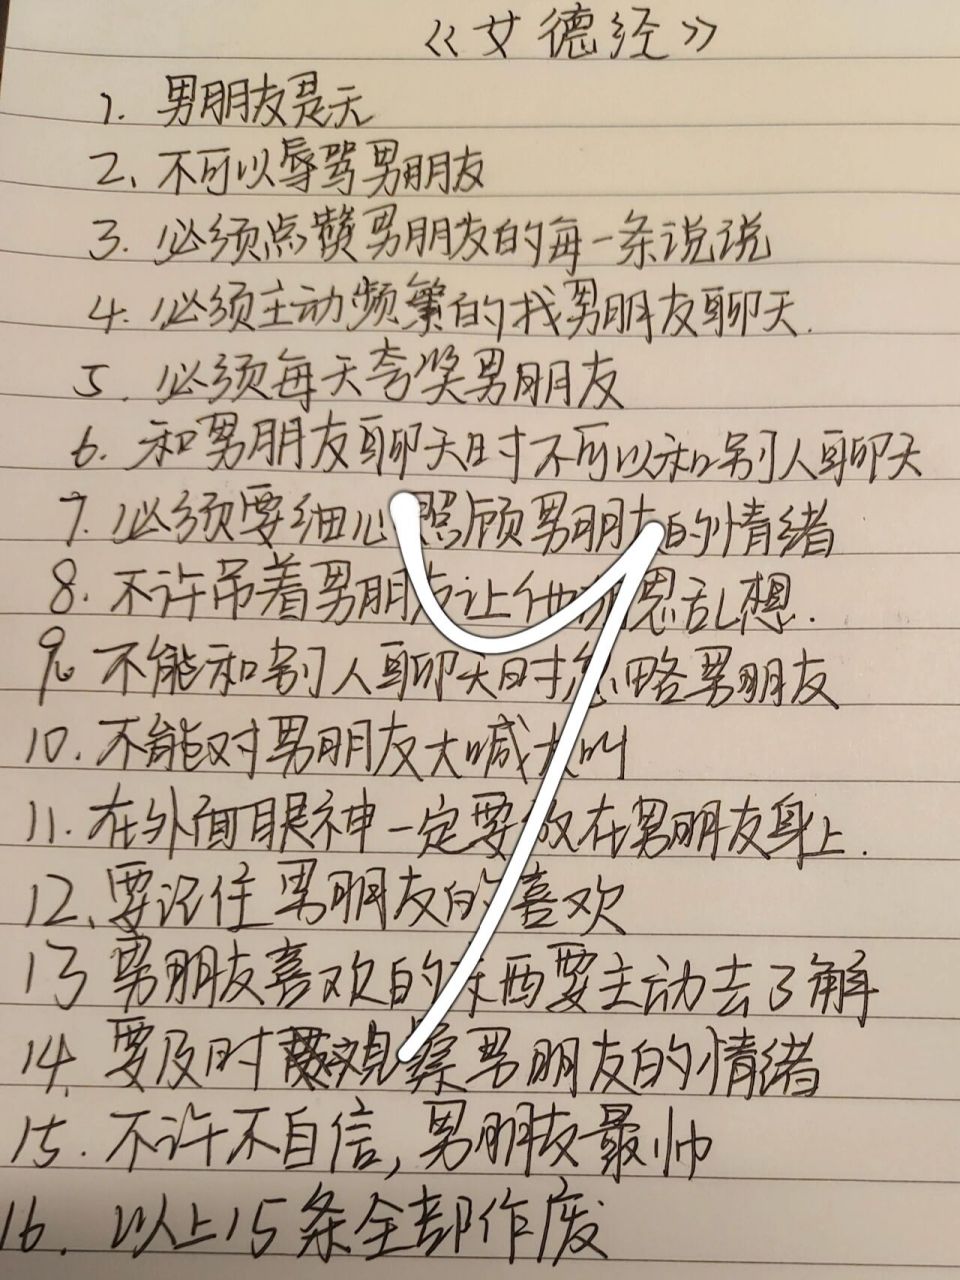 《女德经》
1. 男朋友是天
2、不可以辱骂男朋友
3. 必须点赞男朋友的每一条说说
4. 必须主动频繁的找男朋友聊天.
5. 必须每天夸奖男朋友
6. 和男朋友聊天时不可以和别人聊天
7. 必须要细心照顾男朋友的情绪
8. 不许吊着男朋友让他胡思乱想.
9. 不能和别人聊天时忽略男朋友
10. 不能对男朋友大喊大叫
11. 在外面眼神一定要放在男朋友身上.
12、要记住男朋友的喜欢
13 男朋友喜欢的东西要主动去了解
14. 要及时观察男朋友的情绪
15. 不许不自信,男朋友最帅
16. 以上15条全部作废